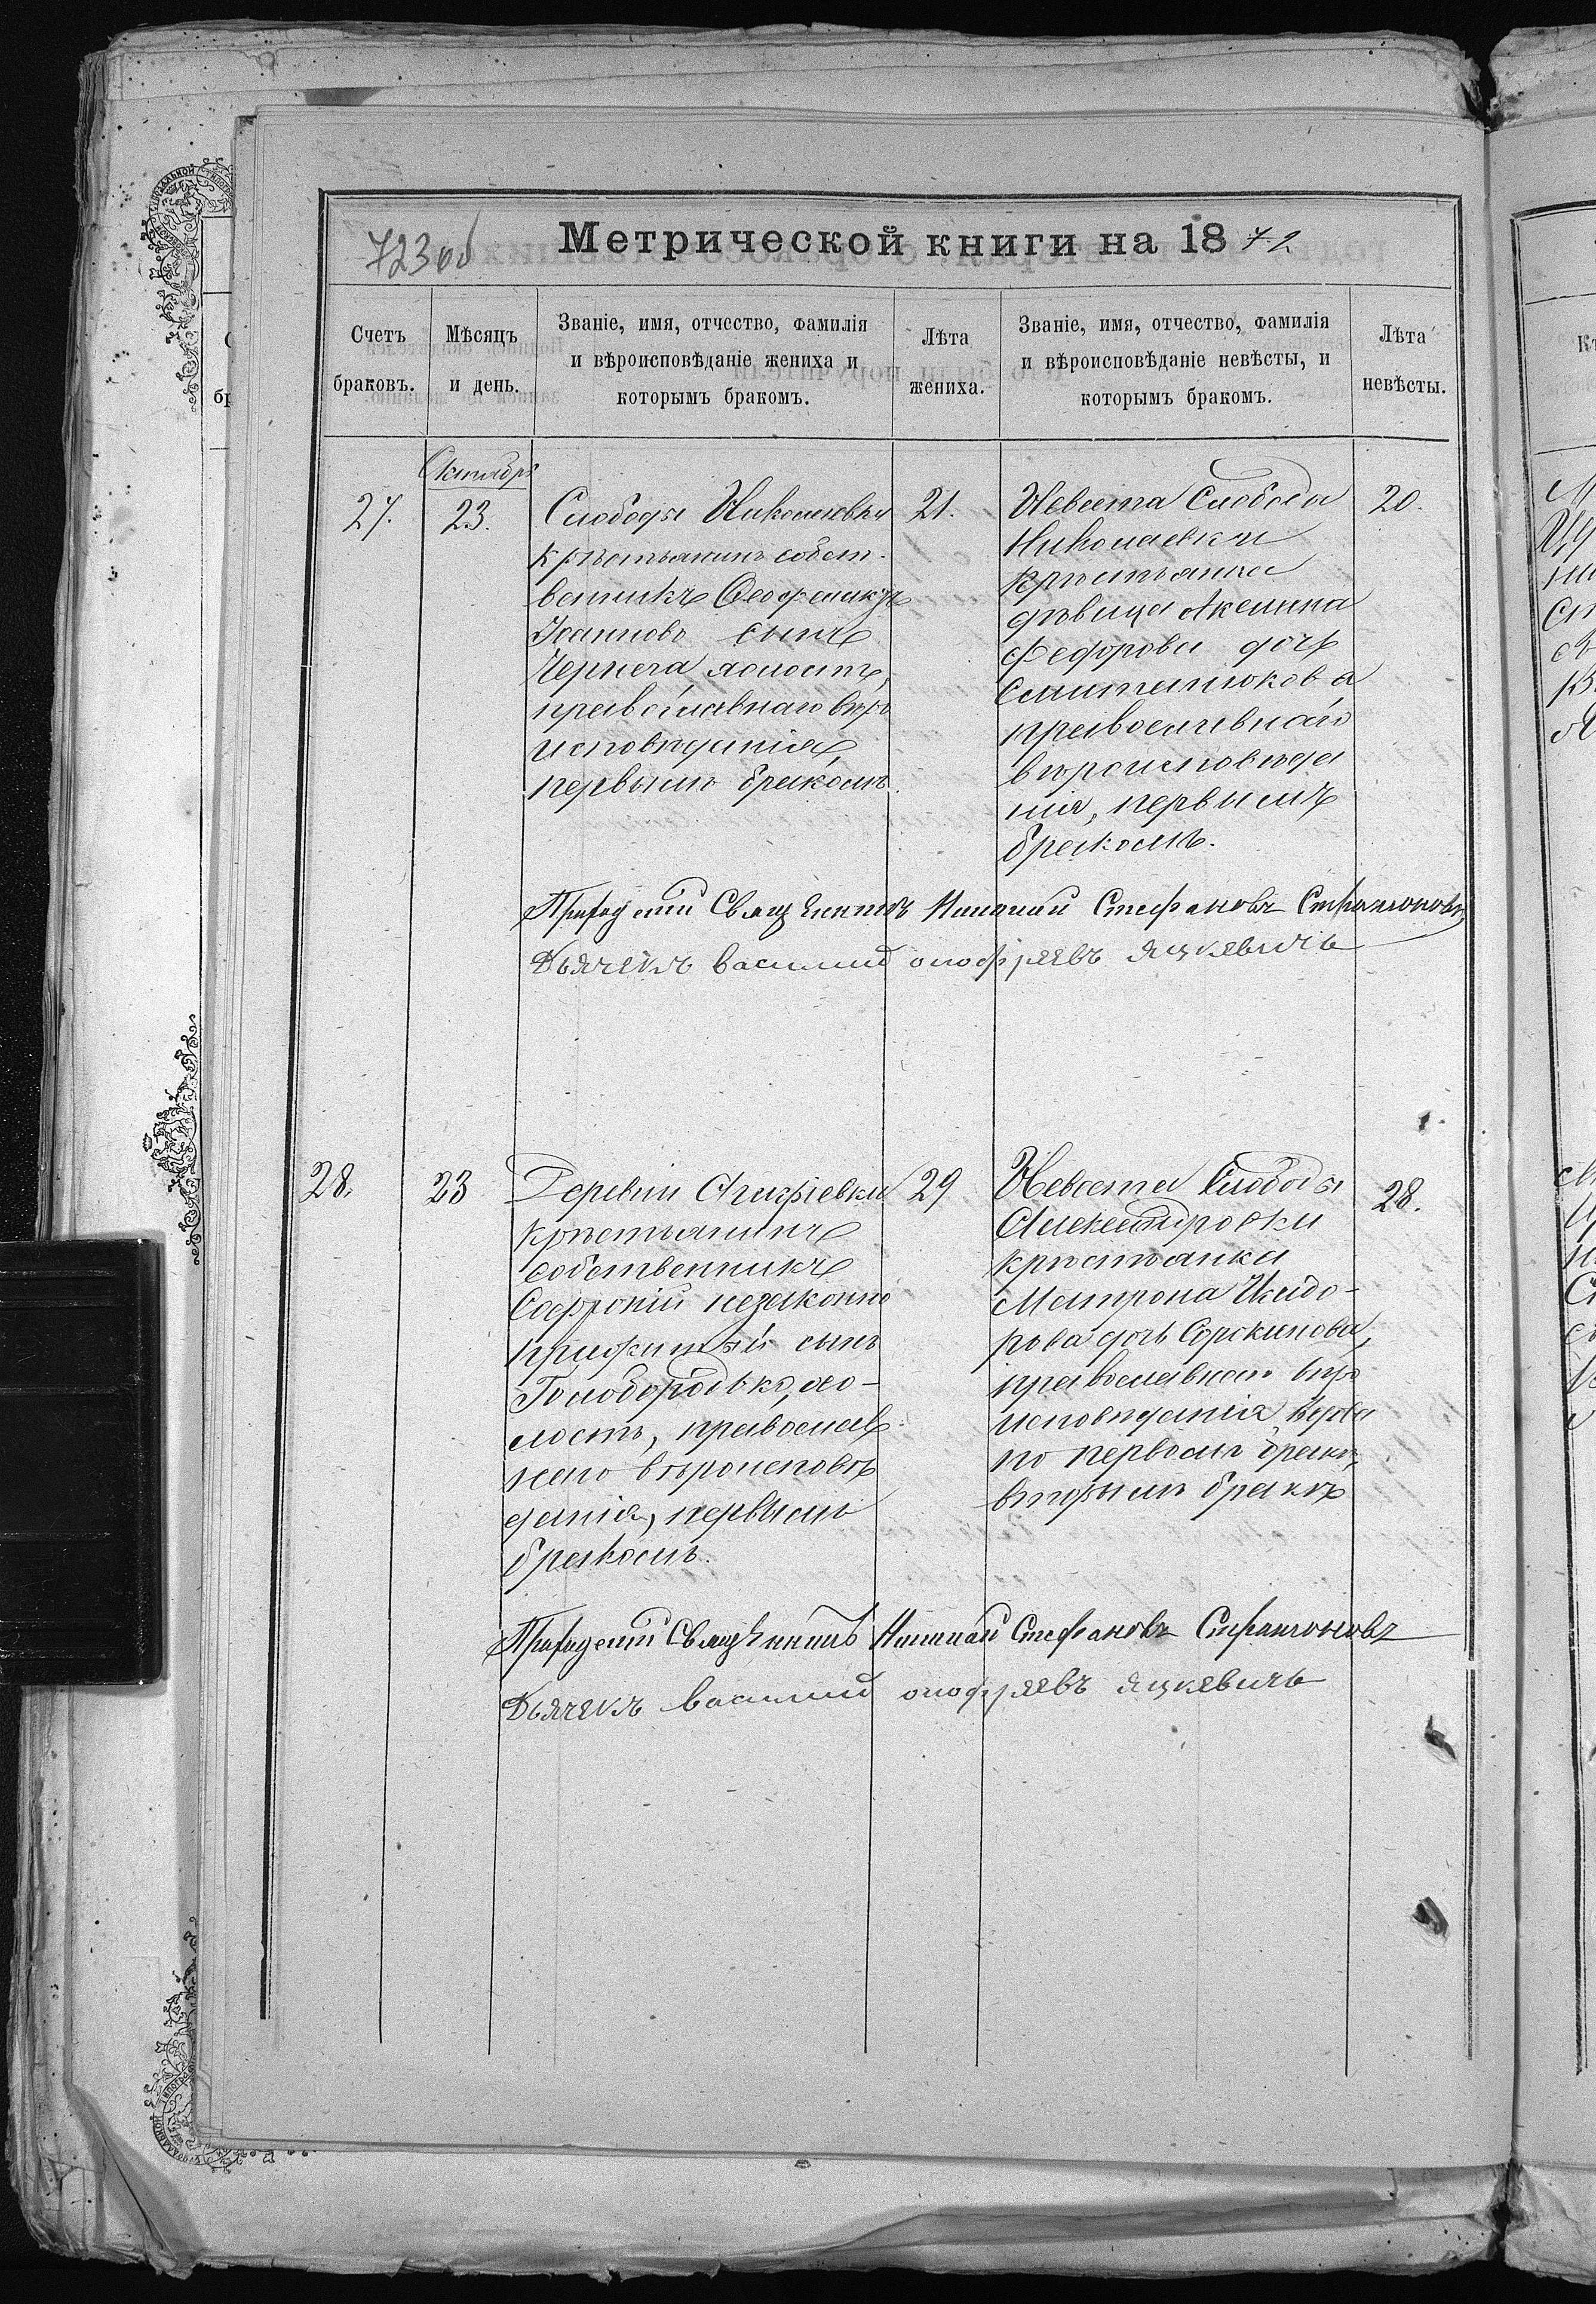 723 об
Метрической книги на 1872
Счетъ браковъ.
Мѣсяцъ и день.
Званіе, имя, отчество, фамилія
и вѣроисповѣданіе жениха и
которымъ бракомъ.
Лѣта жениха.
Званіе, имя, отчество, фамилія
и вѣроисповѣданіе невѣсты, и
которымъ бракомъ.
Лѣта невѣсты.
Октябрь
27.
23.
Слободы Николаевки
крѣстьянинъ собст
венникъ Феофилактъ
Іоанновъ сынъ
Чернега холостъ,
православнаго вѣро
исповѣданія,
первымъ бракомъ.
21.
Невеста Слободы
Николаевки
крѣстьянка
дѣвица Акелина
Федорова дочь
православнаго
вѣроисповѣда
нія, первымъ
бракомъ.
20.
Приходскій Священникъ Николай Стефановъ
Дьячекъ Василий Онофреевъ Яцкевичъ
28.
23
Деревни
крѣстьянинъ
собственникъ
Софроній незаконно
прижитый сынъ
Голобородько, хо-
лостъ, православ
наго вѣроисповѣ
данія, первымъ
бракомъ.
29
Невеста Слободы
Александровки
крѣстьянка
Матрона Исидо-
рова дочь Сорокинова,
православнаго вѣро
исповѣданія вдова
по первомъ браки,
вторымъ бракъ
28.
Приходскій Священникъ Николай Стефановъ
Дьячекъ Василий Онофреевъ Яцкевичъ